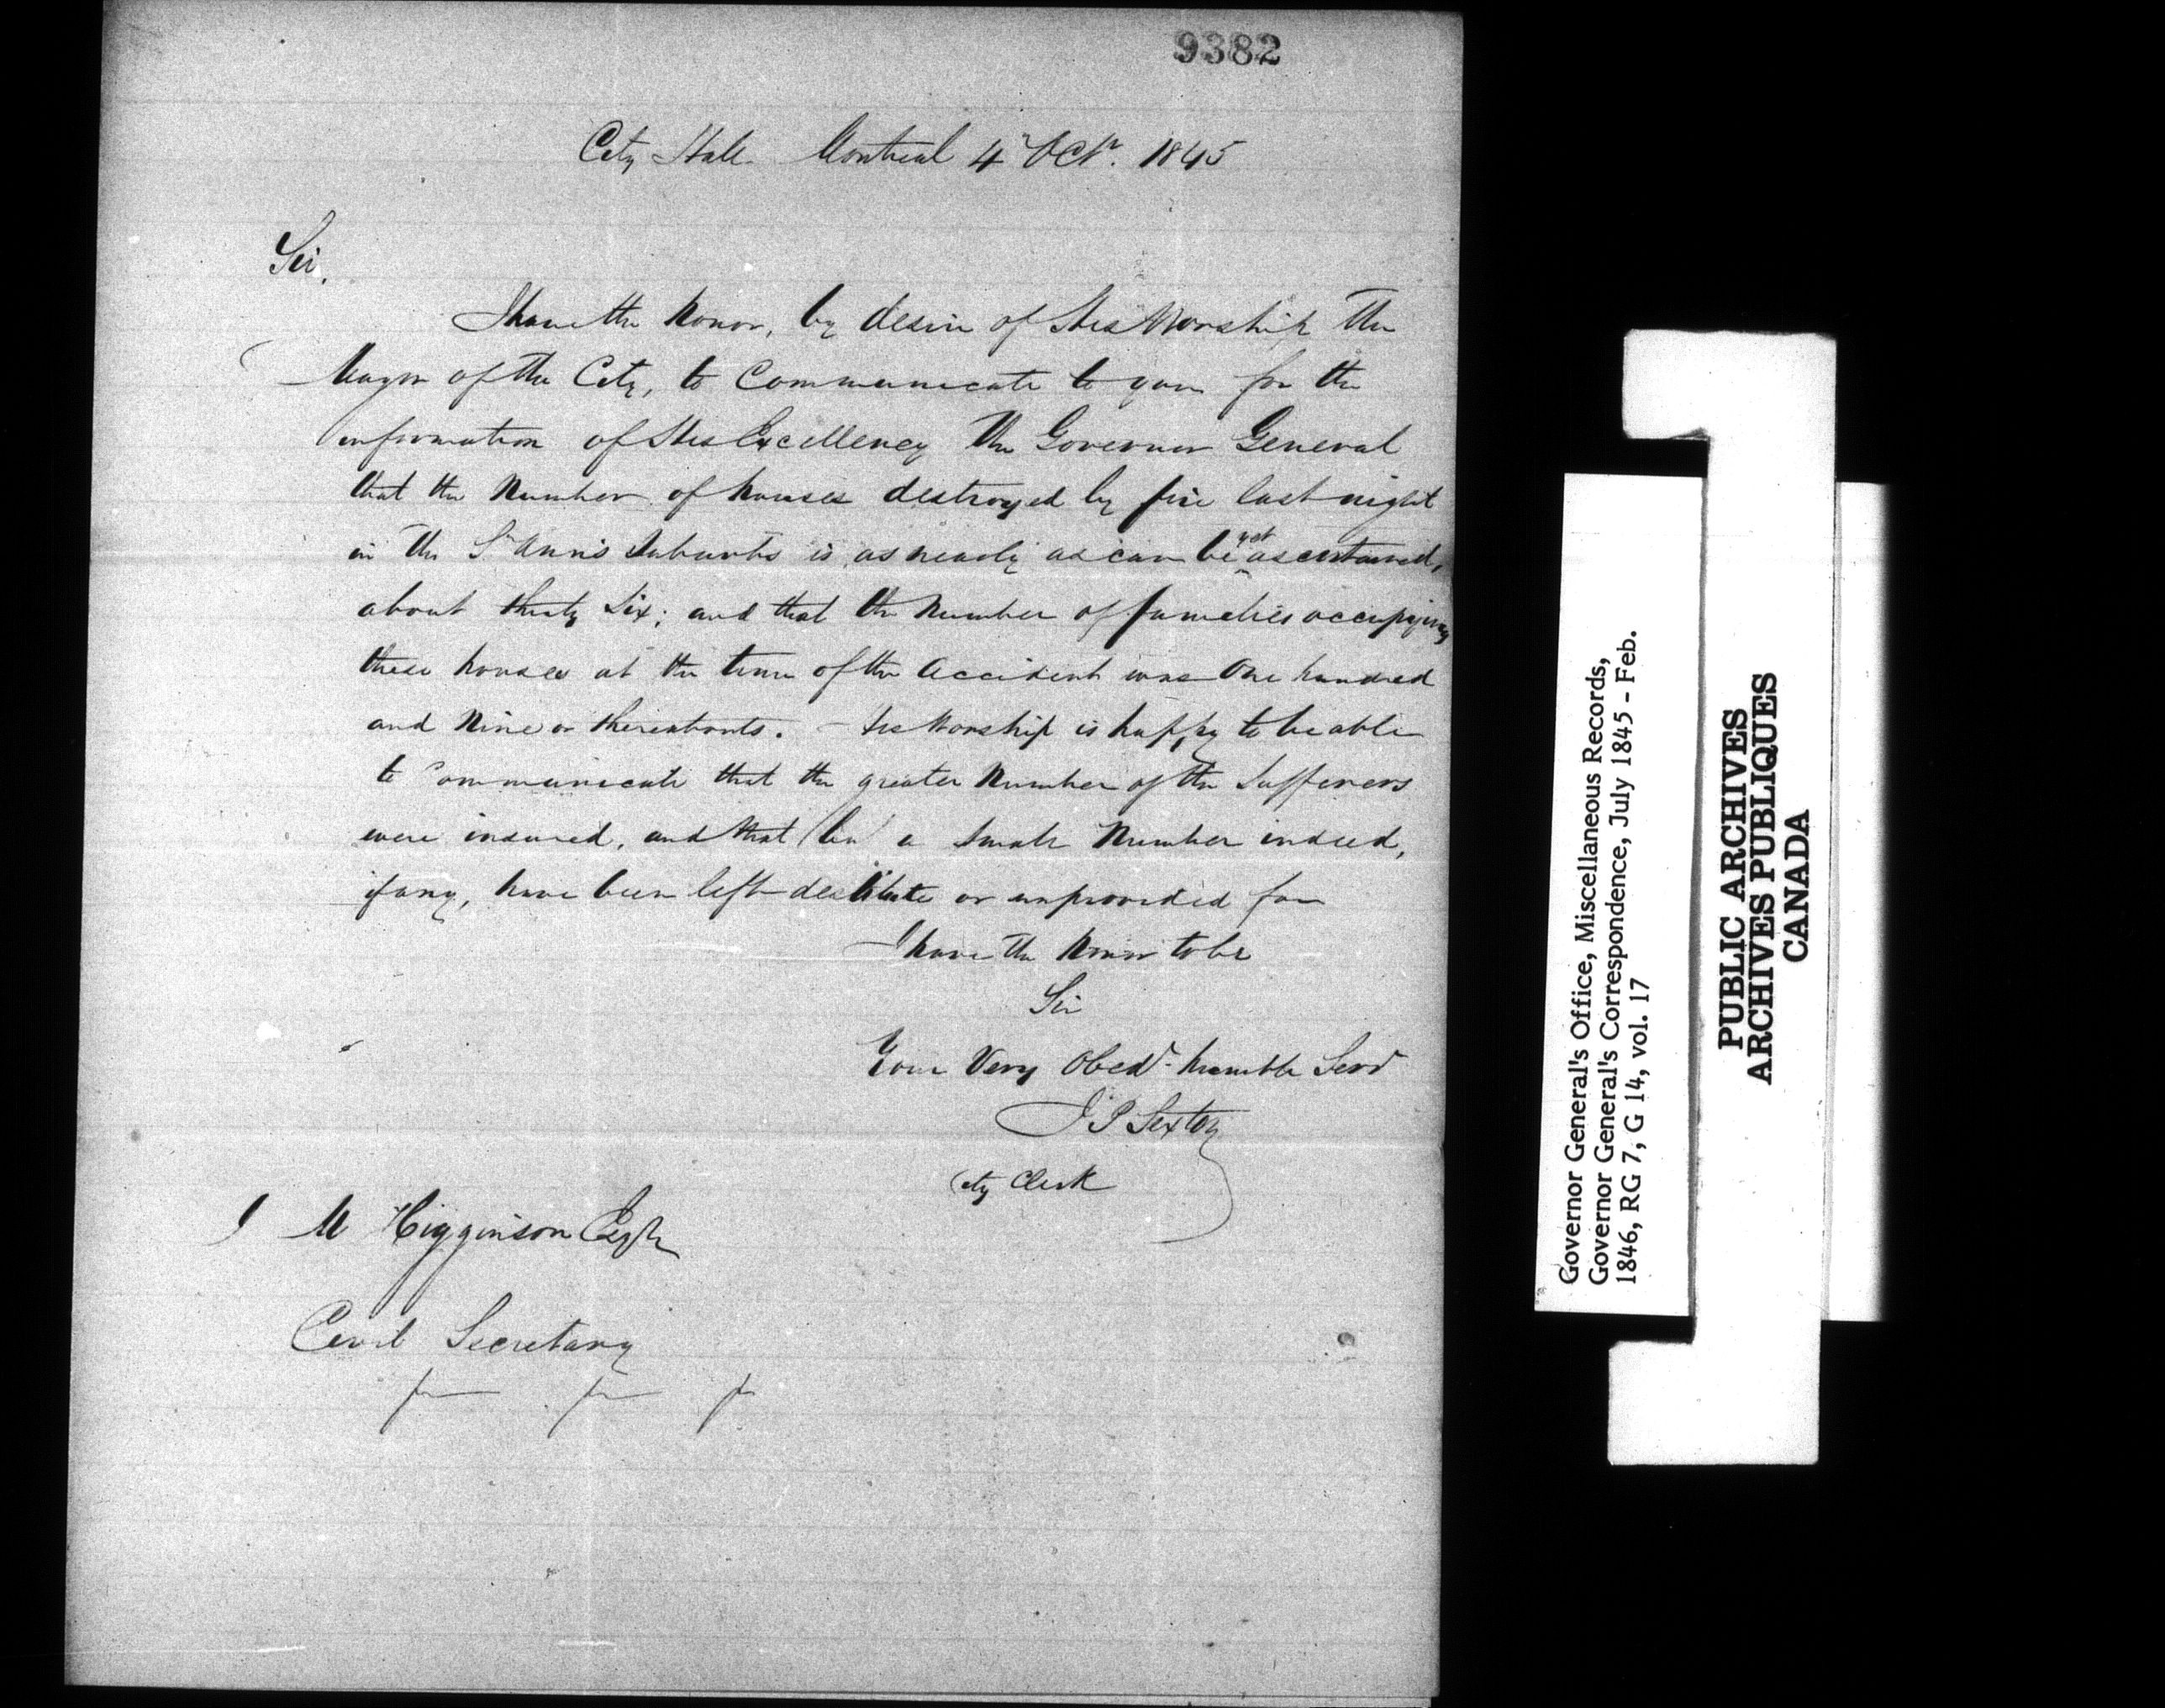 9382
City Hall Montreal 4th Octr. 1845
Sir,
I have the honor, by desire of His Worship the
Mayor of the City, to Communicate to you for the
information of His Excellency the Governor General
that the Number of houses destroyed by fire last night
in the St Ann's Suburbs is, as nearly as can be yet ascertained,
about thirty Six; and that the Number of families occupying
these houses at the time of the Accident was One hundred
and Nine or thereabouts. – His Worship is happy to be able
to Communicate that the greater Number of the Sufferers
were insured, and that but a small Number indeed,
if any, have been left destitute or unprovided for
I have the honor to be
Sir
Your Very Obedt humble Servt
J P Sexton
City Clerk
J M Higginson Esqr
Civil Secretary
Governor General's Office, Miscellaneous Records,
Governor General's Correspondence, July 1845 - Feb.
1846, RG 7, G 14, vol. 17
PUBLIC ARCHIVES
ARCHIVES PUBLIQUES
CANADA